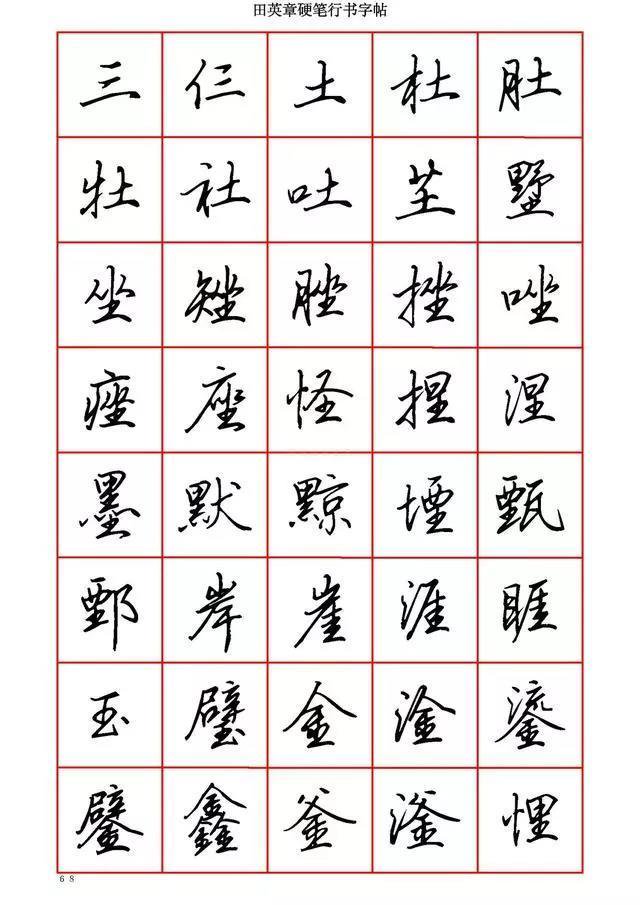 田英章硬笔行书字帖
三 仨 土 杜 肚
牡 社 吐 芏 墅
坐 矬 脞 挫 唑
痤 座 怪 捏 涅
墨 默 黥 堙 甄
鄄 岸 崖 涯 睚
玉 璧 金 淦 鎏
鐾 鑫 釜 滏 悝
68